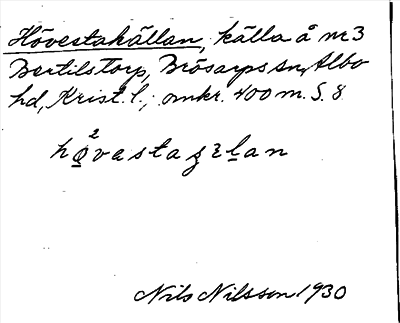 Hövestakällan, källa å nr 3
Bertilstorp, Brösarps sn, Albo
hd, Krist. l.; omkr. 400 m. S. g
2
Nils Nilsson 1930